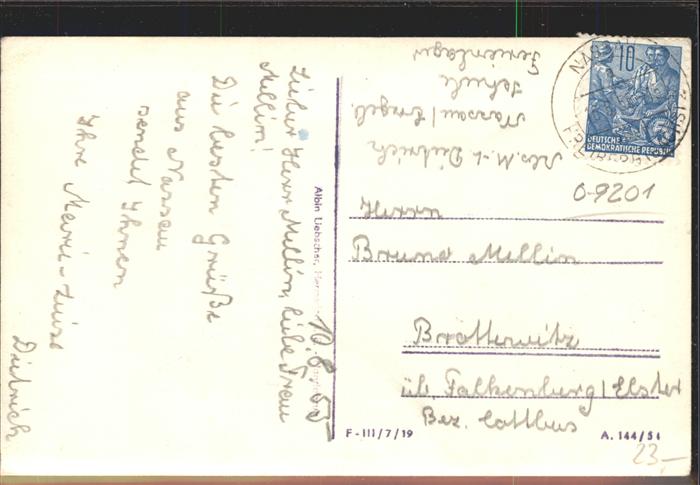 10.8.55
Lieber Herr Mellin, liebe Frau
Mellin!
Die besten Grüße
aus Nassau
sendet Ihnen
Ihre Marie-Luise
Dietrich
Albin Liebscher,
Abs. M.-L. Dietrich
Nassau / Erzgeb.
Schule
Ferienlager
10
DEUTSCHE
DEMOKRATISCHE REPUBLIK
NASSAU
0-9201
Herrn
Bruno Mellin
Brottewitz
üb. Falkenberg/Elster
Bez. Cottbus
F-III/7/19
A. 144/54
23,-